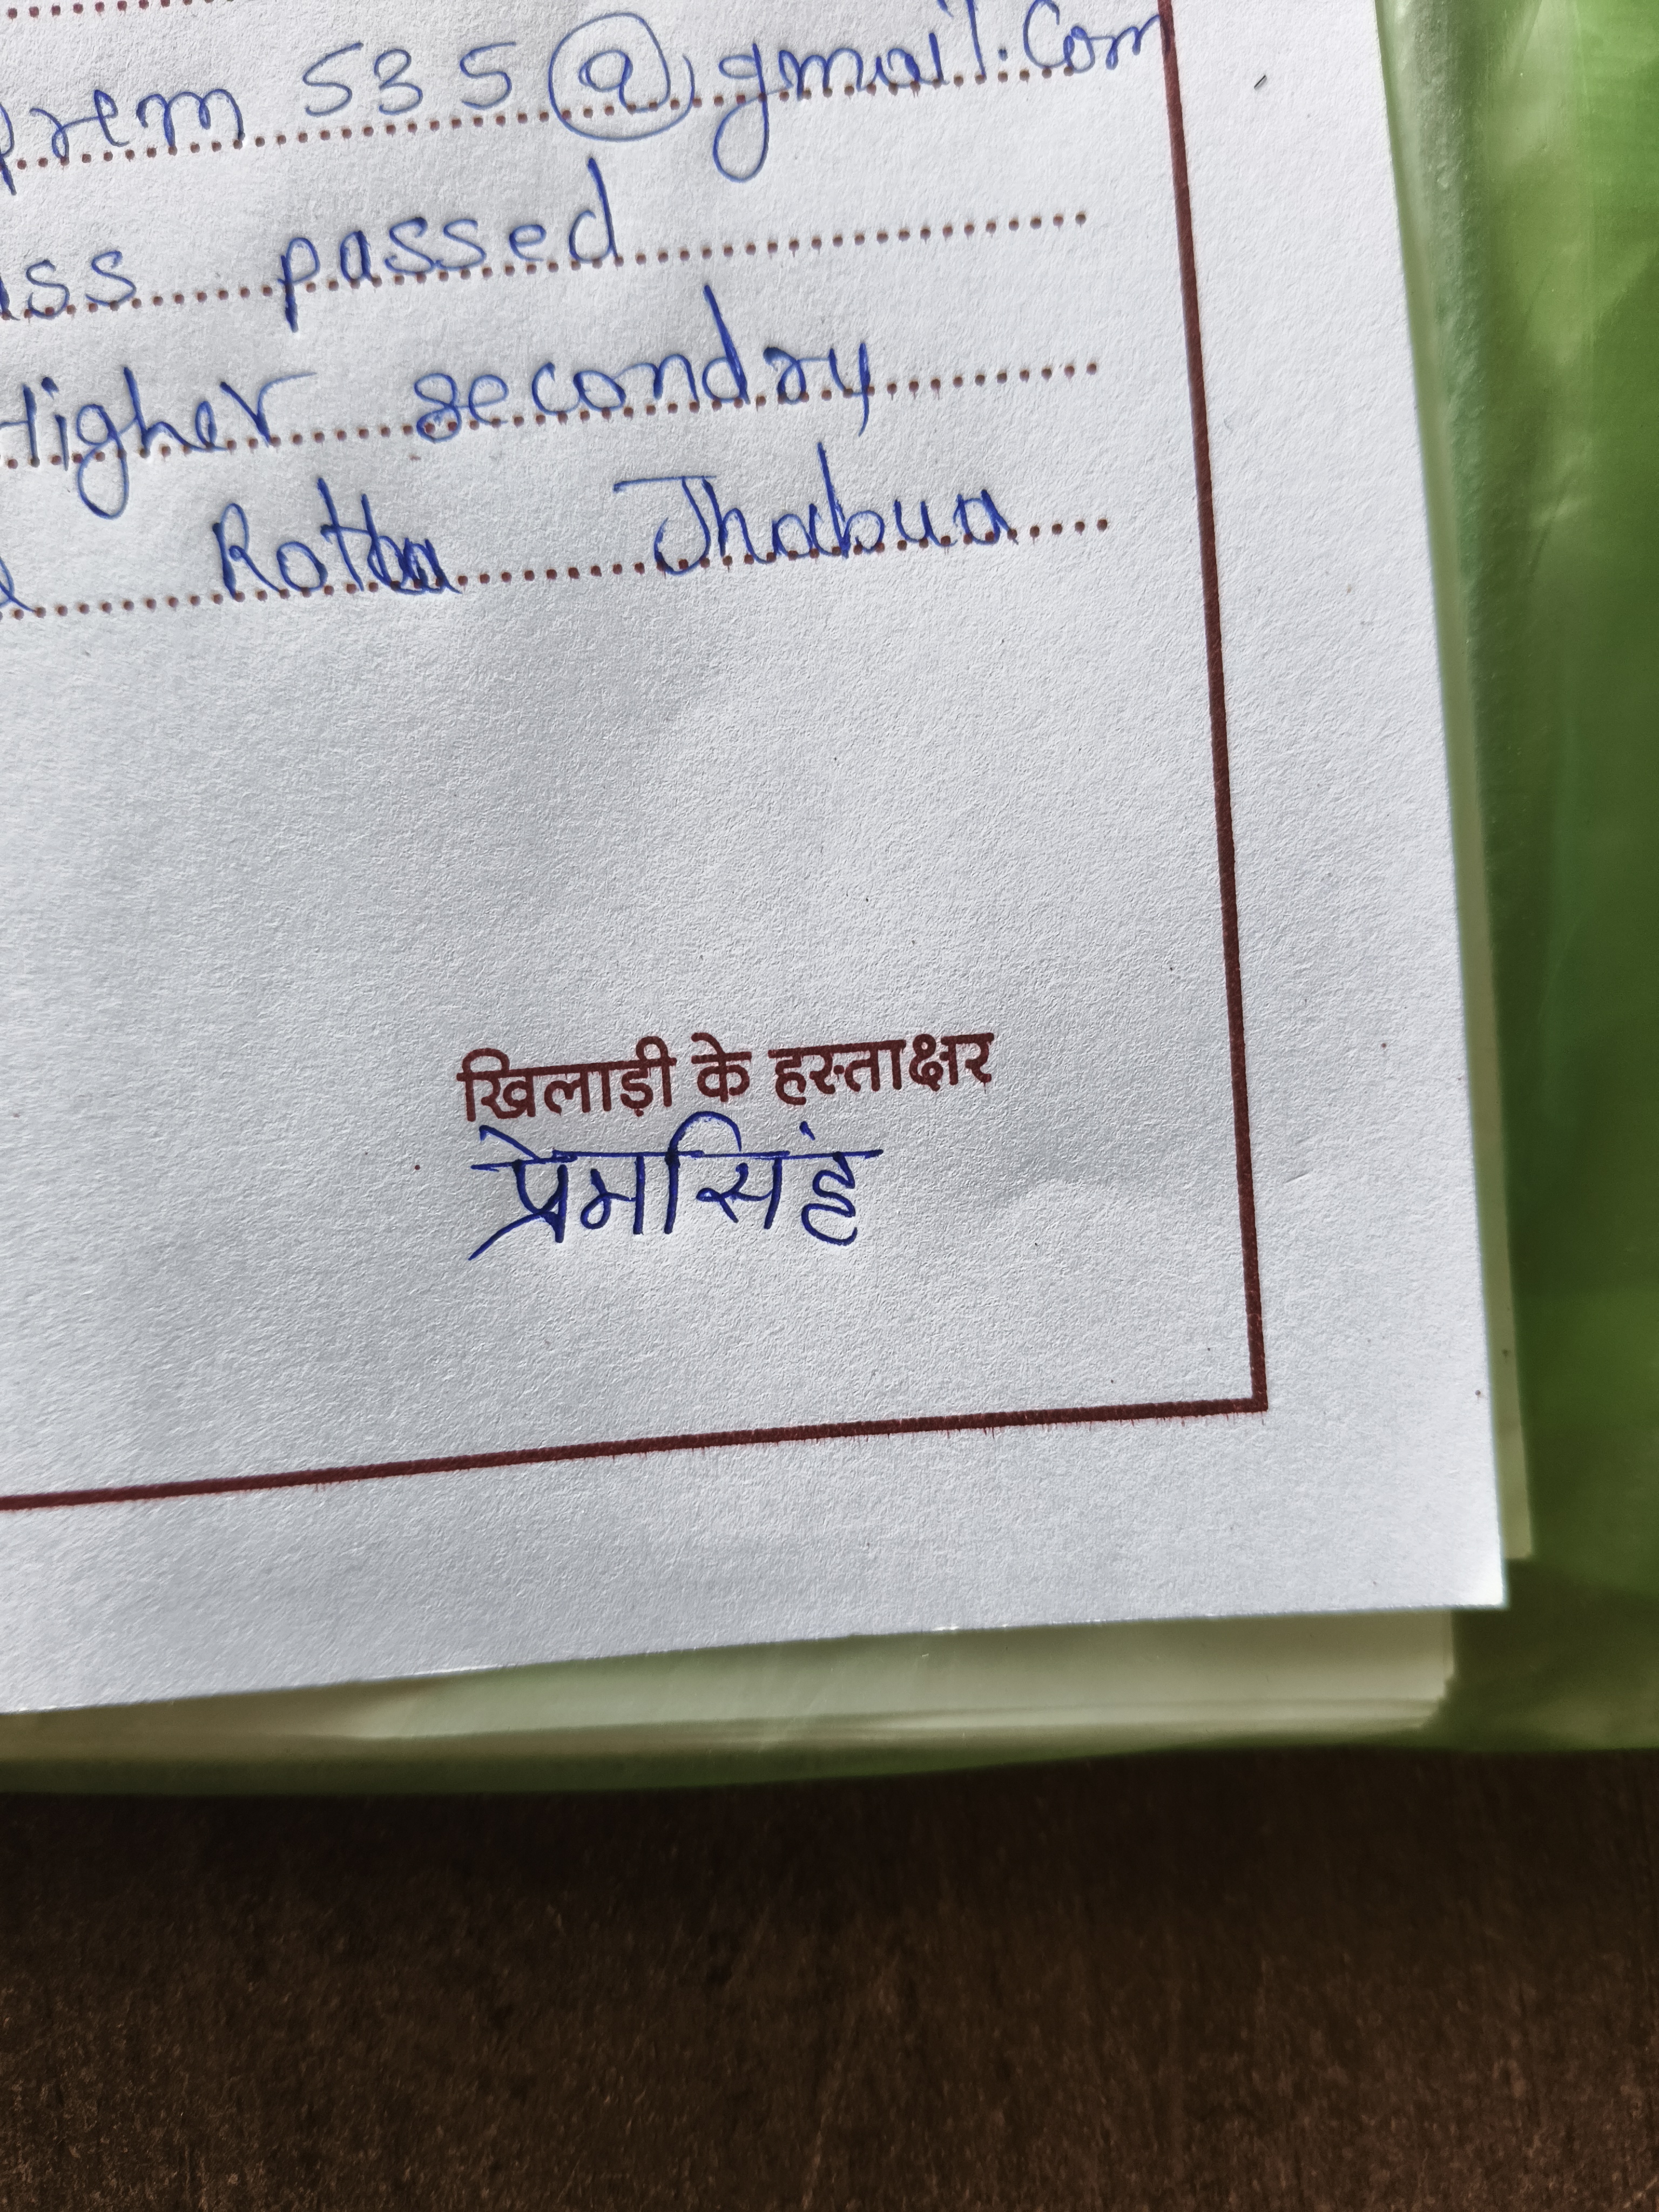 prem 535@gmail.com
ass passed
Higher secondry
Rotla Jhabua
खिलाड़ी के हस्ताक्षर
प्रेमसिंह